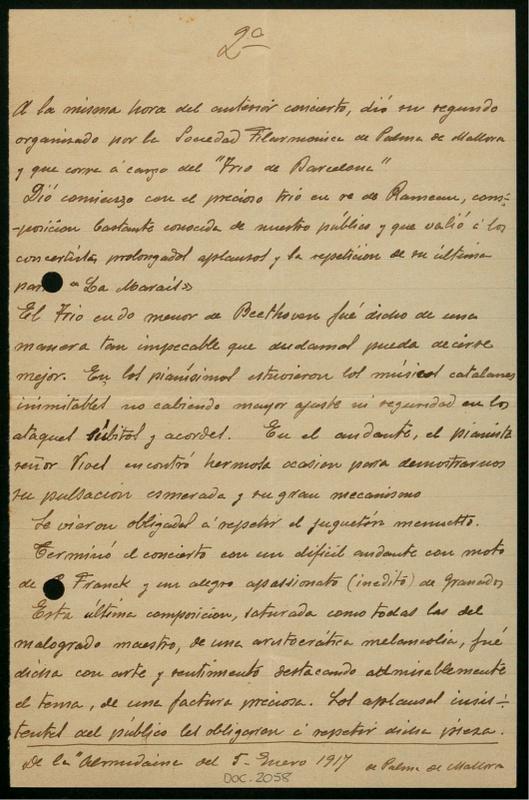 2ª
A la misma hora del anterior concierto, dió su segundo
organizado por la Sociedad Filarmonica de Palma de Mallorca
y que corre á cargo del "Trio de Barcelona"
Dió comienzo con el precioso trio en re de Rameau, com-
-posicion bastante conocida de nuestro público y que valió á los
concertistas prolongados aplausos y la repeticion de su última
par « La Marais»
El Trio en do menor de Beethoven fué dicho de una
manera tan impecable que dudamos pueda decirse
mejor. En los pianísimos estuvieron los músicos catalanes
inimitables no cabiendo mayor ajuste ni seguridad en los
ataques súbitos y acordes. En el andante, el pianista
señor Vives encontró hermosa ocasion para demostrarnos
su pulsacion esmerada y su gran mecanismo
Se vieron obligados á repetir el juguetón menuetto.
Terminó el concierto con un dificil andante con moto
de Franck y un alegro apassionato (inedito) de Granados
Esta última composicion, saturada como todas las del
malogrado maestro, de una aristocrática melancolia, fué
dicha con arte y sentimiento destacando admirablemente
el tema, de una factura preciosa. Los aplausos insis-
tentes del público les obligaron á repetir dicha pieza.
De la "Almudaina del 5-Enero 1917 de Palma de Mallorca
DOC. 2058